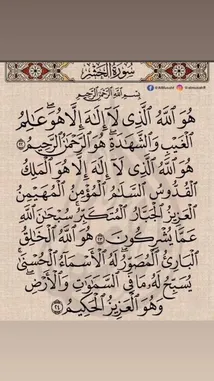 سُورَةُ الحَشْرِ
بِسْمِ اللَّهِ الرَّحْمَٰنِ الرَّحِيمِ
هُوَ اللَّهُ الَّذِي لَا إِلَٰهَ إِلَّا هُوَ ۖ عَٰلِمُ
الْغَيْبِ وَالشَّهَٰدَةِ ۖ هُوَ الرَّحْمَٰنُ الرَّحِيمُ ٢٢
هُوَ اللَّهُ الَّذِي لَا إِلَٰهَ إِلَّا هُوَ الْمَلِكُ
الْقُدُّوسُ السَّلَٰمُ الْمُؤْمِنُ الْمُهَيْمِنُ
الْعَزِيزُ الْجَبَّارُ الْمُتَكَبِّرُ ۚ سُبْحَٰنَ اللَّهِ
عَمَّا يُشْرِكُونَ ٢٣ هُوَ اللَّهُ الْخَٰلِقُ
الْبَارِئُ الْمُصَوِّرُ ۖ لَهُ الْأَسْمَاءُ الْحُسْنَىٰ ۚ
يُسَبِّحُ لَهُ مَا فِي السَّمَٰوَٰتِ وَالْأَرْضِ ۖ
وَهُوَ الْعَزِيزُ الْحَكِيمُ ٢٤